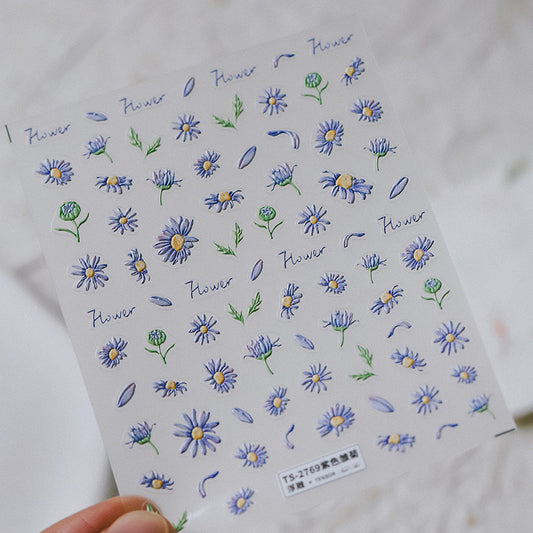 Flower
Flower
Flower
Flower
Flower
Flower
Flower
Flower
TS-2769紫色雏菊
浮雕 • TENSOR